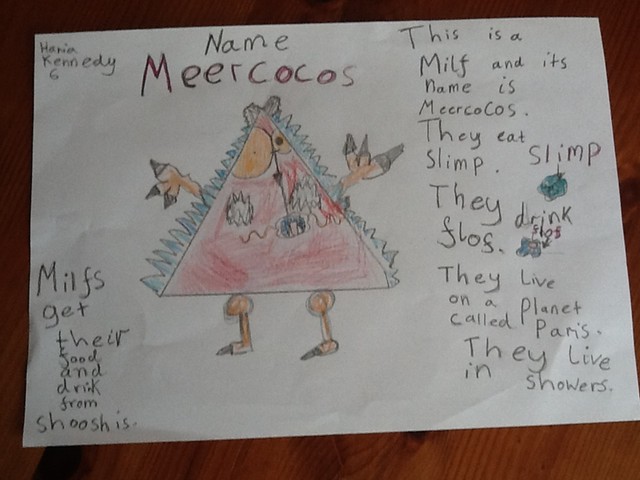 Hania
Kennedy
6
Name
Meercocos
This is a
Milf and its
Name is
Meercocos.
They eat
Slimp.
Slimp
They drink
flos.
flos
They Live
on a Planet
called Paris.
They Live
in showers.
Milfs
get
their
food
and
drink
from
shooshis.